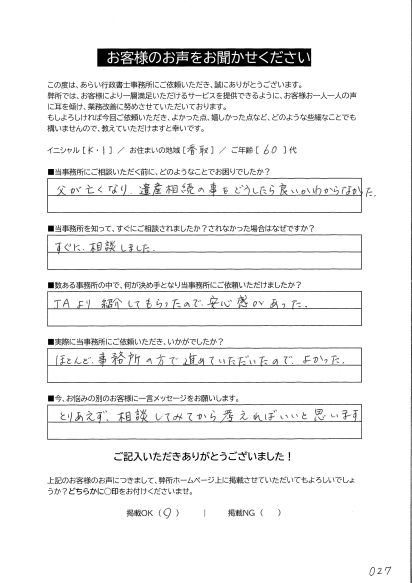 お客様のお声をお聞かせください
この度は、あらい行政書士事務所にご依頼いただき、誠にありがとうございます。
弊所では、お客様により一層満足いただけるサービスを提供できるように、お客様お一人一人の声
に耳を傾け、業務改善に努めさせていただいております。
もしよろしければ今回ご依頼いただき、よかった点、嬉しかった点など、どのような些細なことでも
構いませんので、教えていただけますと幸いです。
イニシャル [K・I] / お住まいの地域 [香取] / ご年齢 [60] 代
■当事務所にご相談いただく前に、どのようなことでお困りでしたか?
父が亡くなり、遺産相続の事をどうしたら良いかわからなかった。
■当事務所を知って、すぐにご相談されましたか?されなかった場合はなぜですか?
すぐに、相談しました。
■数ある事務所の中で、何が決め手となり当事務所にご依頼いただけましたか?
JAより紹介してもらったので、安心感があった。
■実際に当事務所にご依頼いただき、いかがでしたか?
ほとんど、事務所の方で進めていただいたので、よかった。
■今、お悩みの別のお客様に一言メッセージをお願いします。
とりあえず、相談してみてから考えればいいと思います
ご記入いただきありがとうございました!
上記のお客様のお声につきまして、弊所ホームページ上に掲載させていただいてもよろしいでしょ
うか?どちらかに○印をお付けくださいませ。
掲載OK (○) | 掲載NG ( )
027